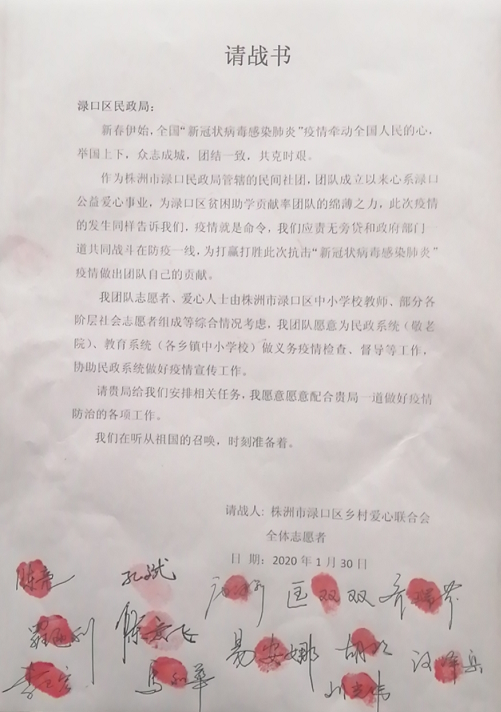 请战书
渌口区民政局：
新春伊始,全国“新冠状病毒感染肺炎”疫情牵动全国人民的心，
举国上下，众志成城，团结一致，共克时艰。
作为株洲市渌口民政局管辖的民间社团，团队成立以来心系渌口
公益爱心事业，为渌口区贫困助学贡献率团队的绵薄之力，此次疫情
的发生同样告诉我们，疫情就是命令，我们应责无旁贷和政府部门一
道共同战斗在防疫一线，为打赢打胜此次抗击“新冠状病毒感染肺炎”
疫情做出团队自己的贡献。
我团队志愿者、爱心人士由株洲市渌口区中小学校教师、部分各
阶层社会志愿者组成等综合情况考虑，我团队愿意为民政系统（敬老
院）、教育系统（各乡镇中小学校）做义务疫情检查、督导等工作，
协助民政系统做好疫情宣传工作。
请贵局给我们安排相关任务，我愿意愿意配合贵局一道做好疫情
防治的各项工作。
我们在听从祖国的召唤，时刻准备着。
请战人：株洲市渌口区乡村爱心联合会
全体志愿者
日 期：2020年1月30日
匡双双
易安娜